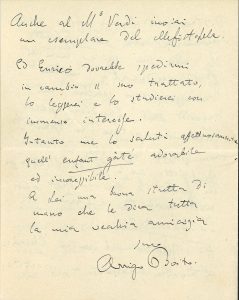 Anche al M° Verdi inviai
un esemplare del Mefistofele.
Ed Enrico dovrebbe spedirmi
in cambio il suo trattato,
lo leggerei e lo studierei con
immenso interesse.
Intanto me lo saluti affettuosamente
quell' enfant gâté adorabile
ed
A Lei una buona stretta di
mano che le dica tutta
la mia vecchia amicizia
suo
Arrigo Boito.